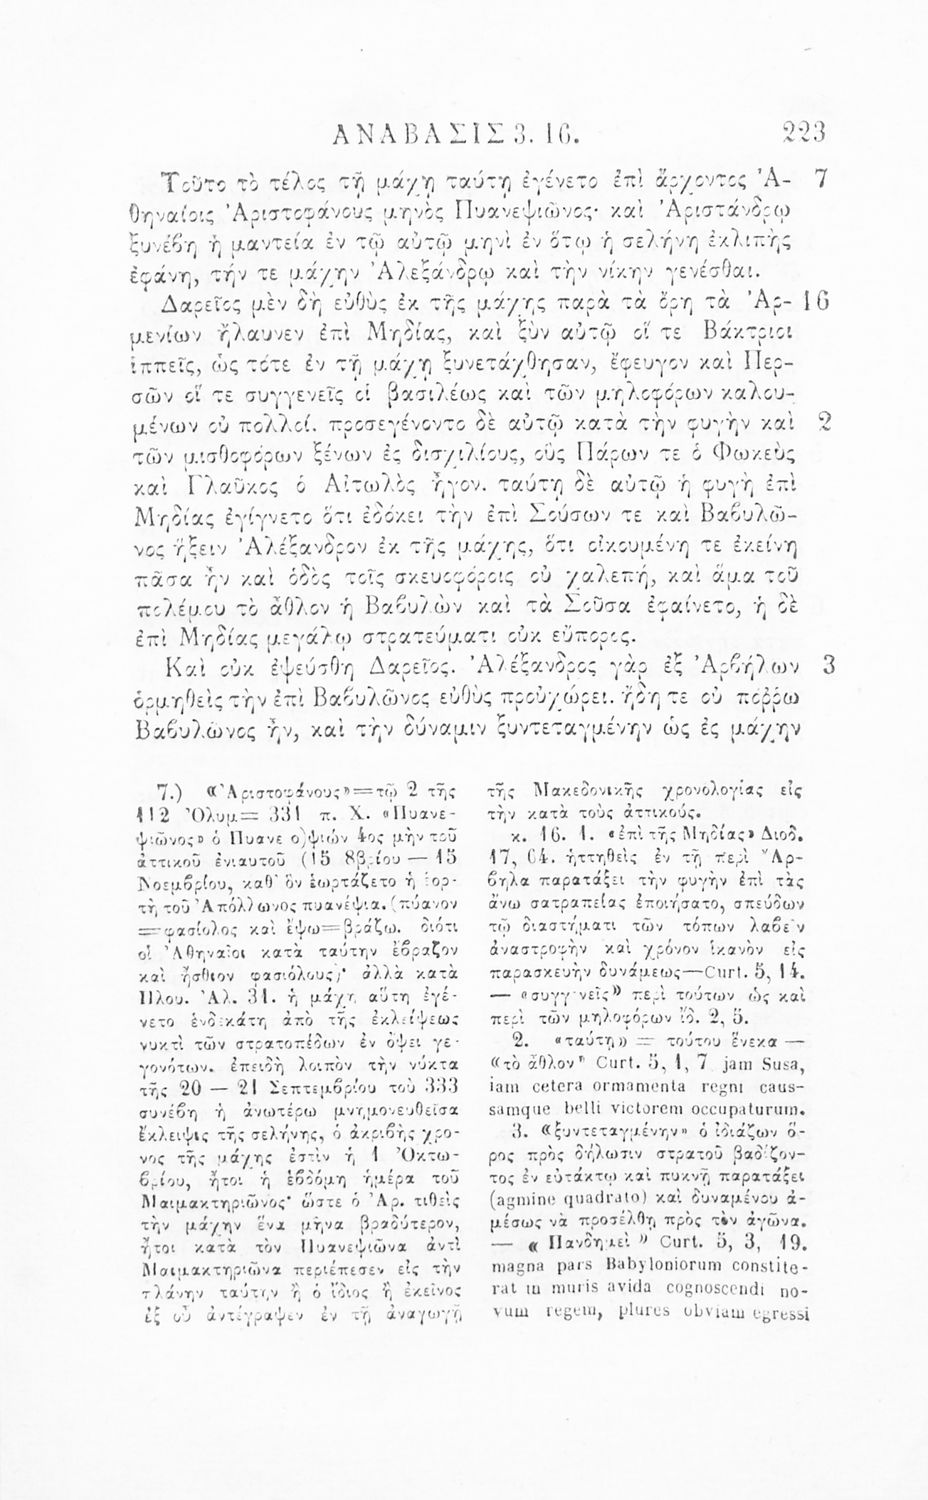 ΑΝΑΒΑΣΙΣ 3. 16. 223
Τοῦτο τὸ τέλος τῇ μάχῃ ταύτῃ ἐγένετο ἐπὶ ἄρχοντος Ἀ- 7
θηναίοις Ἀριστοφάνους μηνὸς Πυανεψιῶνος· καὶ Ἀριστάνδρῳ
ξυνέβη ἡ μαντεία ἐν τῷ αὐτῷ μηνὶ ἐν ὅτῳ ἡ σελήνη ἐκλιπὴς
ἐφάνη, τήν τε μάχην Ἀλεξάνδρῳ καὶ τὴν νίκην γενέσθαι.
Δαρεῖος μὲν δὴ εὐθὺς ἐκ τῆς μάχης παρὰ τὰ ὄρη τὰ Ἀρ- 16
μενίων ἤλαυνεν ἐπὶ Μηδίας, καὶ ξὺν αὐτῷ οἵ τε Βάκτριοι
ἱππεῖς, ὡς τότε ἐν τῇ μάχῃ ξυνετάχθησαν, ἔφευγον καὶ Περ-
σῶν οἵ τε συγγενεῖς οἱ βασιλέως καὶ τῶν μηλοφόρων καλου-
μένων οὐ πολλοί. προσεγένοντο δὲ αὐτῷ κατὰ τὴν φυγὴν καὶ 2
τῶν μισθοφόρων ξένων ἐς δισχιλίους, οὓς Πάρων τε ὁ Φωκεὺς
καὶ Γλαῦκος ὁ Αἰτωλὸς ἦγον. ταύτῃ δὲ αὐτῷ ἡ φυγὴ ἐπὶ
Μηδίας ἐγίγνετο ὅτι ἐδόκει τὴν ἐπὶ Σούσων τε καὶ Βαβυλῶ-
νος ἥξειν Ἀλέξανδρον ἐκ τῆς μάχης, ὅτι οἰκουμένη τε ἐκείνη
πᾶσα ἦν καὶ ὁδὸς τοῖς σκευοφόροις οὐ χαλεπή, καὶ ἅμα τοῦ
πολέμου τὸ ἆθλον ἡ Βαβυλὼν καὶ τὰ Σοῦσα ἐφαίνετο, ἡ δὲ
ἐπὶ Μηδίας μεγάλῳ στρατεύματι οὐκ εὔπορος.
Καὶ οὐκ ἐψεύσθη Δαρεῖος. Ἀλέξανδρος γὰρ ἐξ Ἀρβήλων 3
ὁρμηθεὶς τὴν ἐπὶ Βαβυλῶνος εὐθὺς προὐχώρει. ἤδη τε οὐ πόῤῥω
Βαβυλῶνος ἦν, καὶ τὴν δύναμιν ξυντεταγμένην ὡς ἐς μάχην
7.) «Ἀριστοφάνους»=τῷ 2 τῆς
112 Ὀλυμ= 331 π. Χ. «Πυανε-
ψιῶνος» ὁ Πυανε ο)ψιών 4ος μὴν τοῦ
ἀττικοῦ ἐνιαυτοῦ (15 8βρίου — 15
Νοεμβρίου, καθ' ὃν ἑωρτάζετο ἡ ἑορ-
τὴ τοῦ Ἀπόλλωνος πυανέψια. (πύανον
=φασίολος καὶ ἕψω=βράζω. διότι
οἱ Ἀθηναῖοι κατὰ ταύτην ἔβραζον
καὶ ἤσθιον φασιόλους)· ἀλλὰ κατὰ
Πλου. Ἀλ. 31. ἡ μάχη αὕτη ἐγέ-
νετο ἑνδεκάτη ἀπὸ τῆς ἐκλείψεως
νυκτὶ τῶν στρατοπέδων ἐν ὄψει γε-
γονότων. ἐπειδὴ λοιπὸν τὴν νύκτα
τῆς 20 — 21 Σεπτεμβρίου τοῦ 333
συνέβη ἡ ἀνωτέρω μνημονευθεῖσα
ἔκλειψις τῆς σελήνης, ὁ ἀκριβὴς χρό-
νος τῆς μάχης ἐστὶν ἡ 1 Ὀκτω-
βρίου, ἤτοι ἡ ἑβδόμη ἡμέρα τοῦ
Μαιμακτηριῶνος· ὥστε ὁ Ἀρ. τιθεὶς
τὴν μάχην ἕνα μῆνα βραδύτερον,
ἤτοι κατὰ τὸν Πυανεψιῶνα ἀντὶ
Μαιμακτηριῶνα περιέπεσεν εἰς τὴν
πλάνην ταύτην ἢ ὁ ἴδιος ἢ ἐκεῖνος
ἐξ οὗ ἀντέγραψεν ἐν τῇ ἀναγωγῇ
τῆς Μακεδονικῆς χρονολογίας εἰς
τὴν κατὰ τοὺς ἀττικούς.
κ. 16. 1. «ἐπὶ τῆς Μηδίας» Διοδ.
17, 64. ἡττηθεὶς ἐν τῇ περὶ Ἄρ-
βηλα παρατάξει τὴν φυγὴν ἐπὶ τὰς
ἄνω σατραπείας ἐποιήσατο, σπεύδων
τῷ διαστήματι τῶν τόπων λαβεῖν
ἀναστροφὴν καὶ χρόνον ἱκανὸν εἰς
παρασκευὴν δυνάμεως—Curt. 5, 14.
— «συγγενεῖς» περὶ τούτων ὡς καὶ
περὶ τῶν μηλοφόρων ἴδ. 2, 5.
2. «ταύτῃ» = τούτου ἕνεκα —
«τὸ ἆθλον» Curt. 5, 1, 7 jam Susa,
iam cetera ormamenta regni caus-
samque belli victorem occupaturum.
3. «ξυντεταγμένην» ὁ ἰδιάζων ὅ-
ρος πρὸς δήλωσιν στρατοῦ βαδίζον-
τος ἐν εὐτάκτῳ καὶ πυκνῇ παρατάξει
(agmine quadrato) καὶ δυναμένου ἀ-
μέσως νὰ προσέλθῃ πρὸς τὸν ἀγῶνα.
— « Πανδημεὶ » Curt. 5, 3, 19.
magna pars Babyloniorum constite-
rat in muris avida cognoscendi no-
vum regem, plures obviam egressi